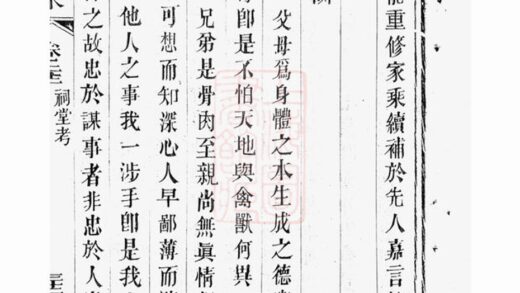 能重修家乘續補於先人嘉言
父母爲身體之本生成之德
母卽是不怕天地與禽獸何異
兄弟是骨肉至親尚無眞情
可想而知深心人早鄙薄而
他人之事我一涉手卽是我
之故忠於謀事者非忠於人
祠堂考